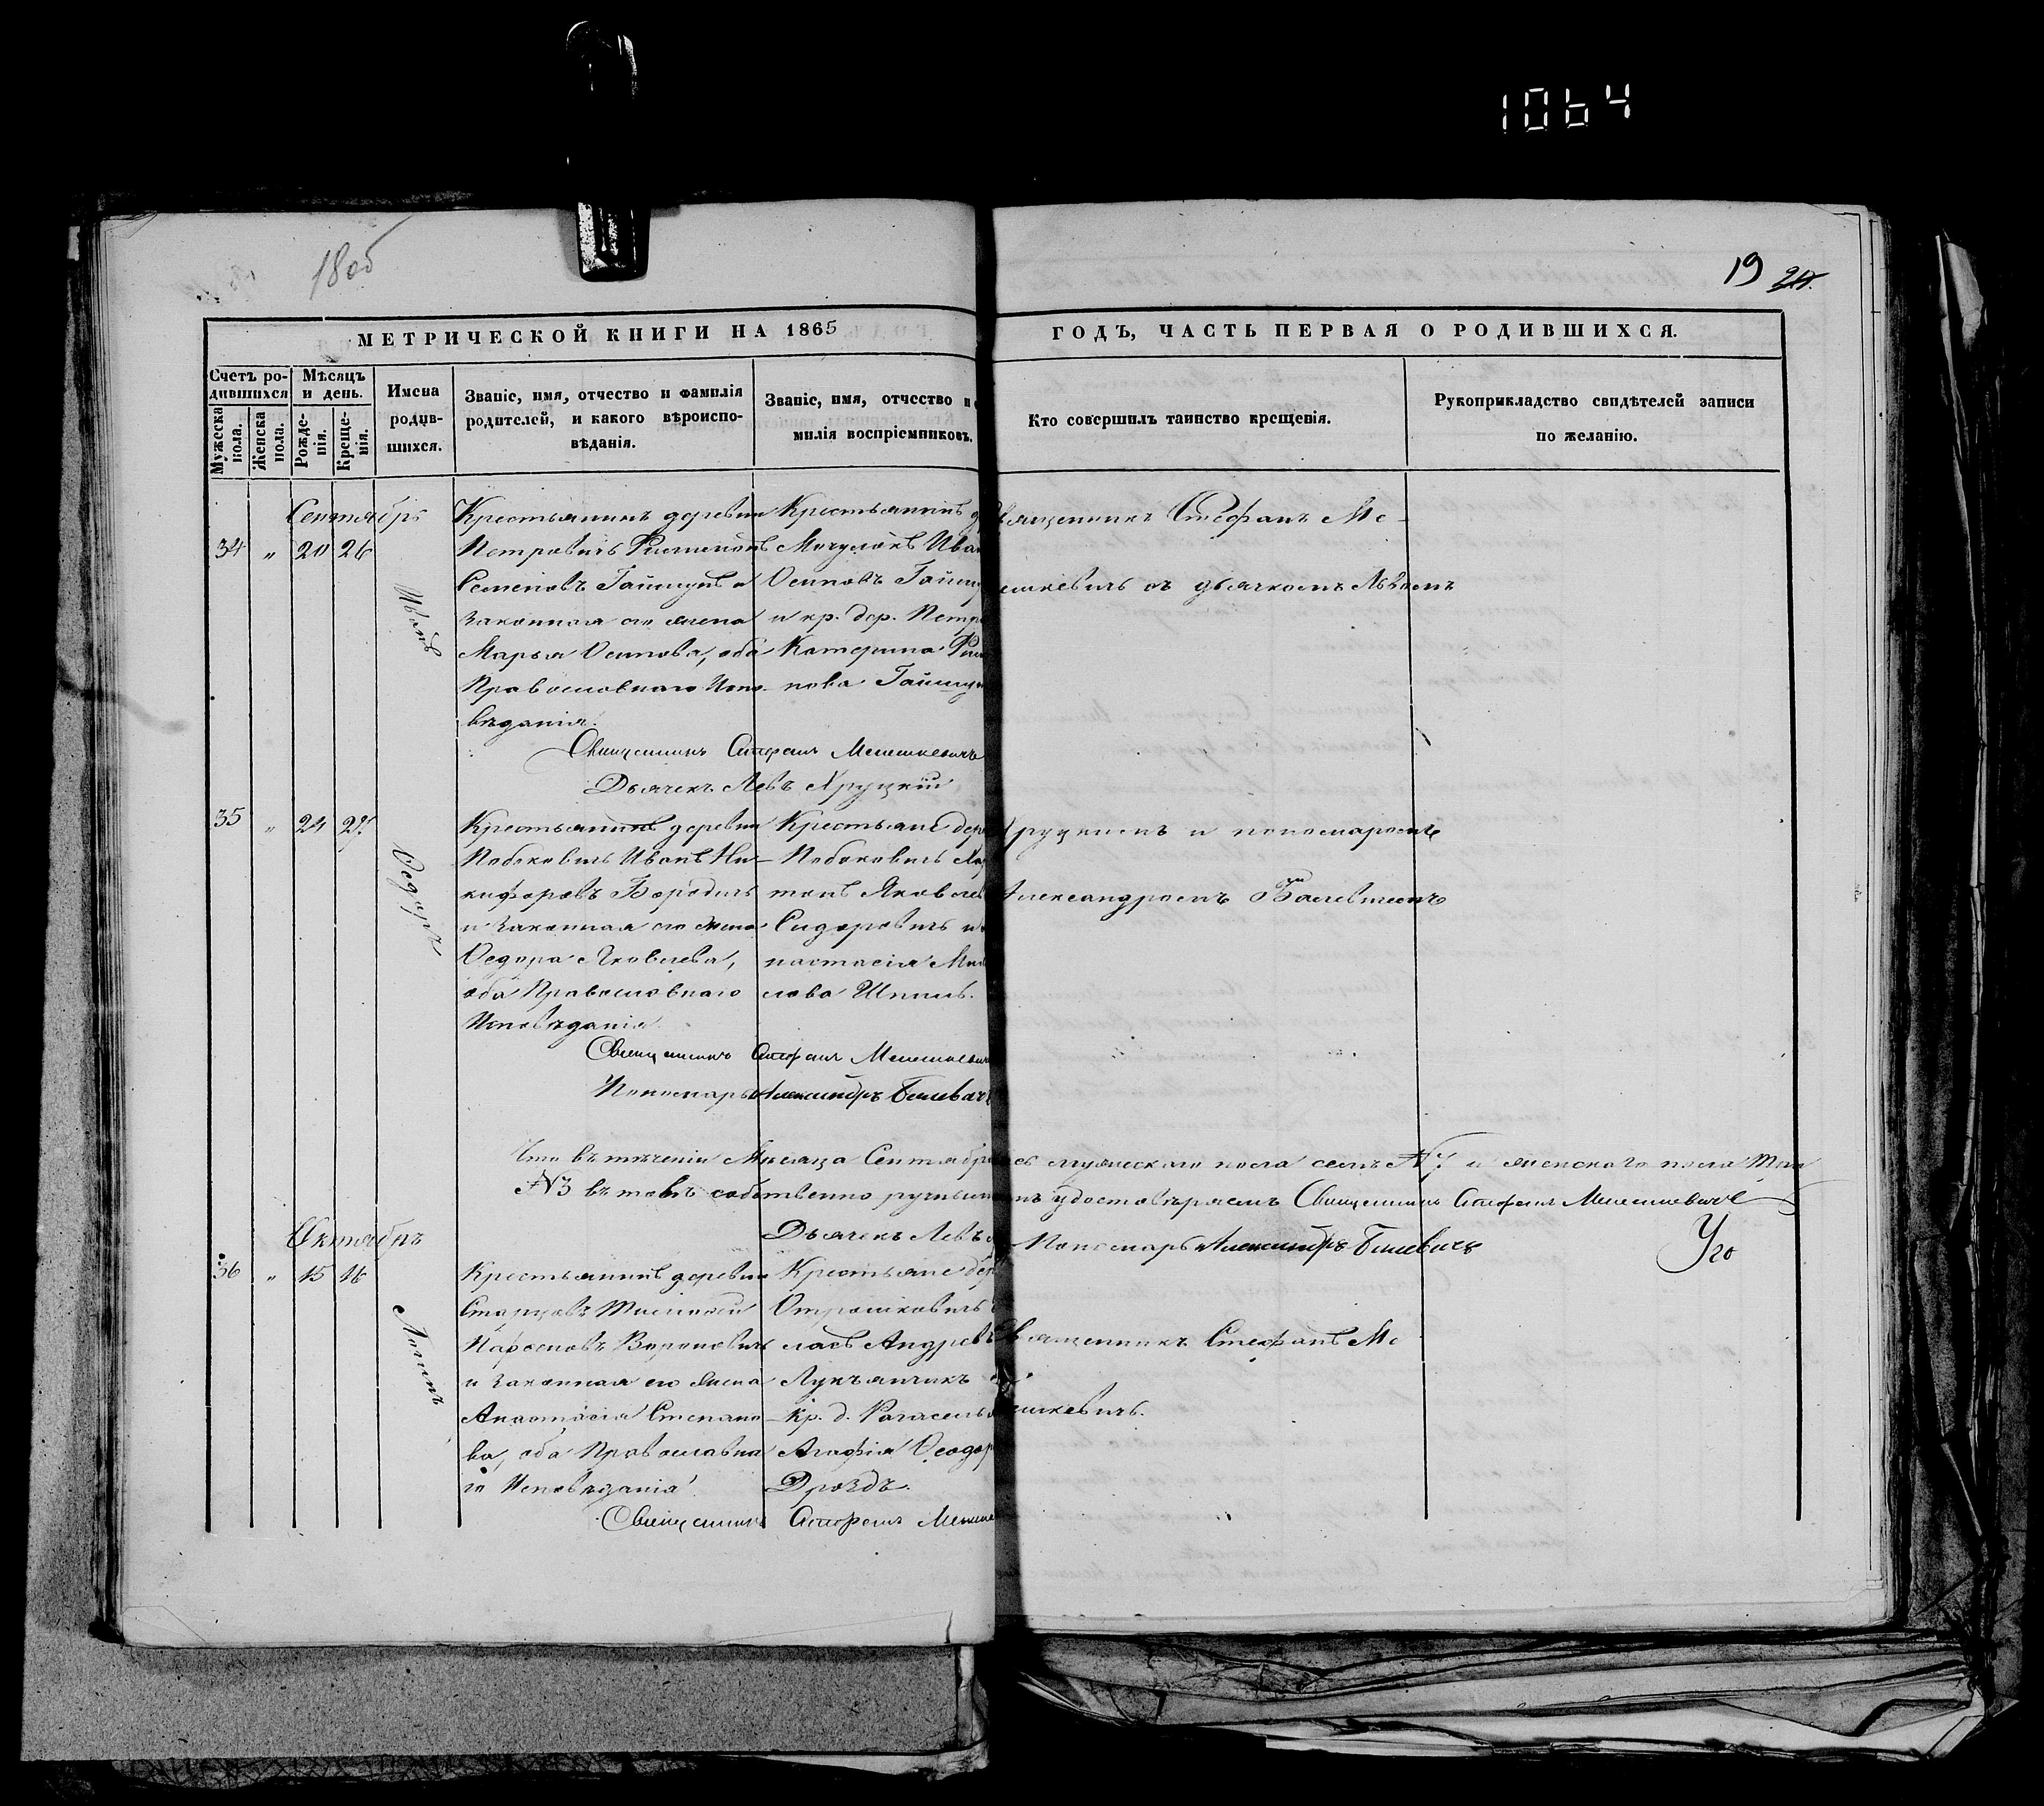 1064
18 об
19 20.
МЕТРИЧЕСКОЙ КНИГИ НА 1865 ГОДЪ, ЧАСТЬ ПЕРВАЯ О РОДИВШИХСЯ.
Счетъ ро-
дившихся
Мужеска пола.
Женска пола.
Мѣсяцъ
и день.
Рожде-
нія.
Креще-
нія.
Имена
родив-
шихся.
Званіе, имя, отчество и фамилія
родителей, и какого вѣроиспо-
вѣданія.
Званіе, имя, отчество и
милія воспріемниковъ.
Кто совершилъ таинство крещенія.
Рукоприкладство свидѣтелей записи
по желанію.
Сентябрь
34 " 20 26
Иванъ
Крестьянинъ деревни
Петровичъ
Семеновъ Гайшунъ и
Законная его жена
Марья Осипова, оба
Православнаго Испо-
вѣданія.
Крестьянинъ д
Ива
Осиповъ Гайшу
и кр. дер. Петр
Катерина
пова Гайшун
Священникъ Стефанъ Ме-
лешкевичъ съ дьячкомъ Львомъ
Священникъ Стефанъ Мелешкевичъ
Дьячекъ Левъ Хруцкій
35 " 24 27
Ѳедоръ
Крестьянинъ деревни
Побоковичъ Иванъ Ни-
кифоровъ Бородичъ
и Законная его жена
Ѳедора Яковлева,
оба Православнаго
Исповѣданія.
Крестьяне дер
Побоковичъ Ха
тонъ Яковлев
Сидоровичъ и
настасія
лова Шпилъ.
Хруцкимъ и пономаремъ
Александромъ Балевичемъ
Священникъ Стефанъ Мелешкевич
Пономарь Александръ Балевичъ
Что въ теченіи Мѣсяца Сентября мужескаго пола семь № 7 и женскаго пола три
№ 3 въ томъ собственно ручным удостовѣряемъ Священникъ Стефанъ Мелешкевичъ
Дьячекъ Левъ Пономарь Александръ Балевичъ
Октябрь
36 " 15 16
Логинъ
Крестьянинъ деревни
Старцовъ Тимоѳей
Парѳеновъ Вороновичъ
и Законная его Жена
Анастасія Степано-
ва, оба Православна
го Исповѣданія.
Крестьяне дер
Отрошковичъ
ласъ Андреев
Лукъянчикъ
кр. д.
Агафія Ѳеодор
Дроздъ.
Священникъ Стефанъ Ме
лешкевичъ.
Священникъ Стефанъ Мелешке